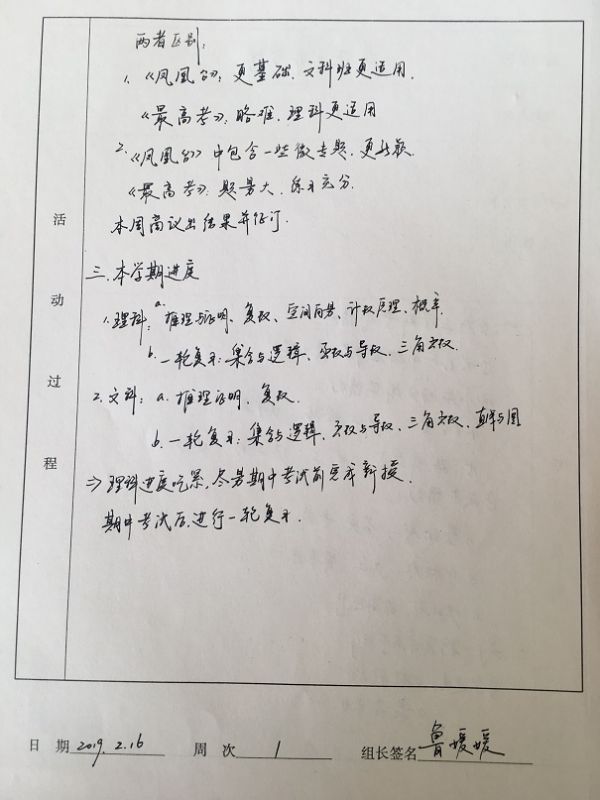 两者区别：
1.《凤凰台》：更基础，文科班更适用.
《最高考》：略难，理科更适用
2.《凤凰台》中包含一些微专题，更新颖
《最高考》：题量大，练习充分.
本周商议出结果并征订.
三.本学期进度
1.理科：a.推理与证明、复数、空间向量、计数原理、概率.
b.一轮复习：集合与逻辑、函数与导数、三角函数.
2.文科：a.推理证明、复数.
b.一轮复习：集合与逻辑、函数与导数、三角函数、直线与圆
⇒理科进度吃紧，尽量期中考试前完成新授.
期中考试后，进行一轮复习.
活
动
过
程
日 期 2019.2.16 周 次 1 组长签名 鲁媛媛